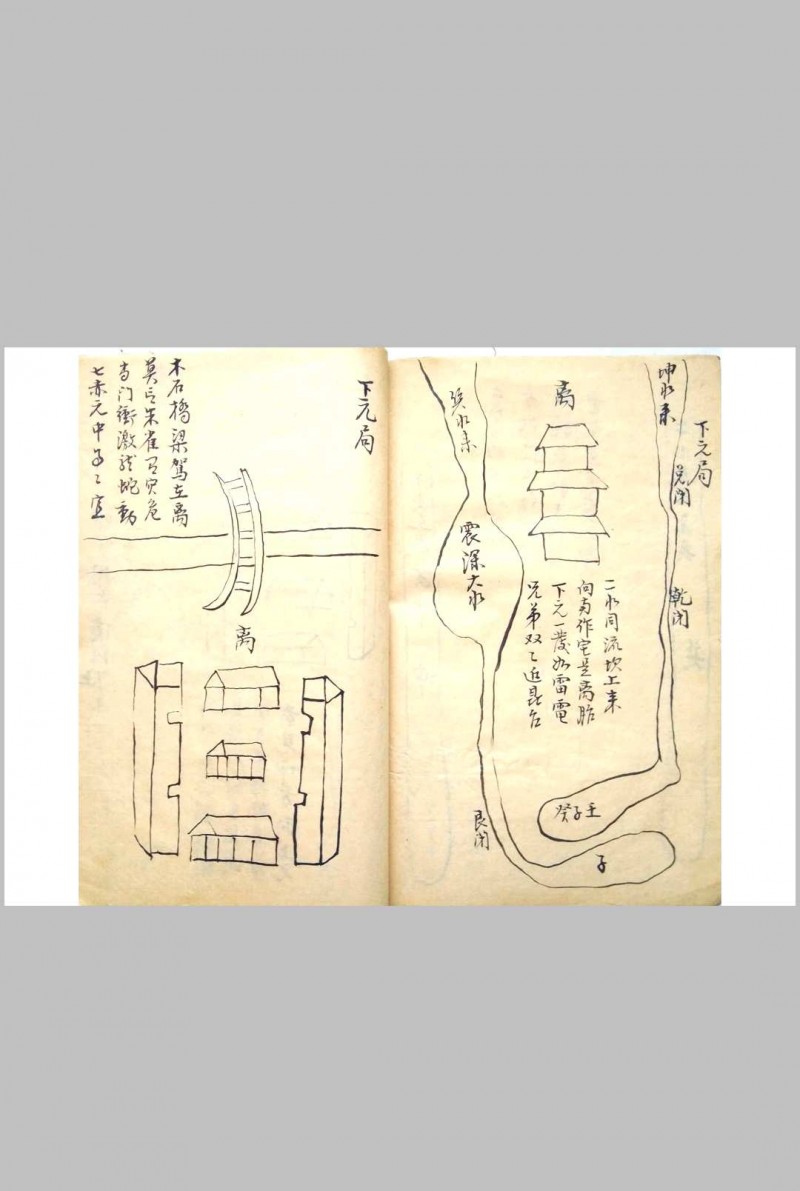 下元局
坤水来
兑闭
乾闭
离
巽水来
震深大水
二水同流坎上来
向南作宅是离胎
下元一發如雷電
兄弟双〻近台
壬子癸
子
艮闭
下元局
木石橋梁駕在离
莫言朱雀有灾危
当门衝激蛇動
七赤元中〻宜
离